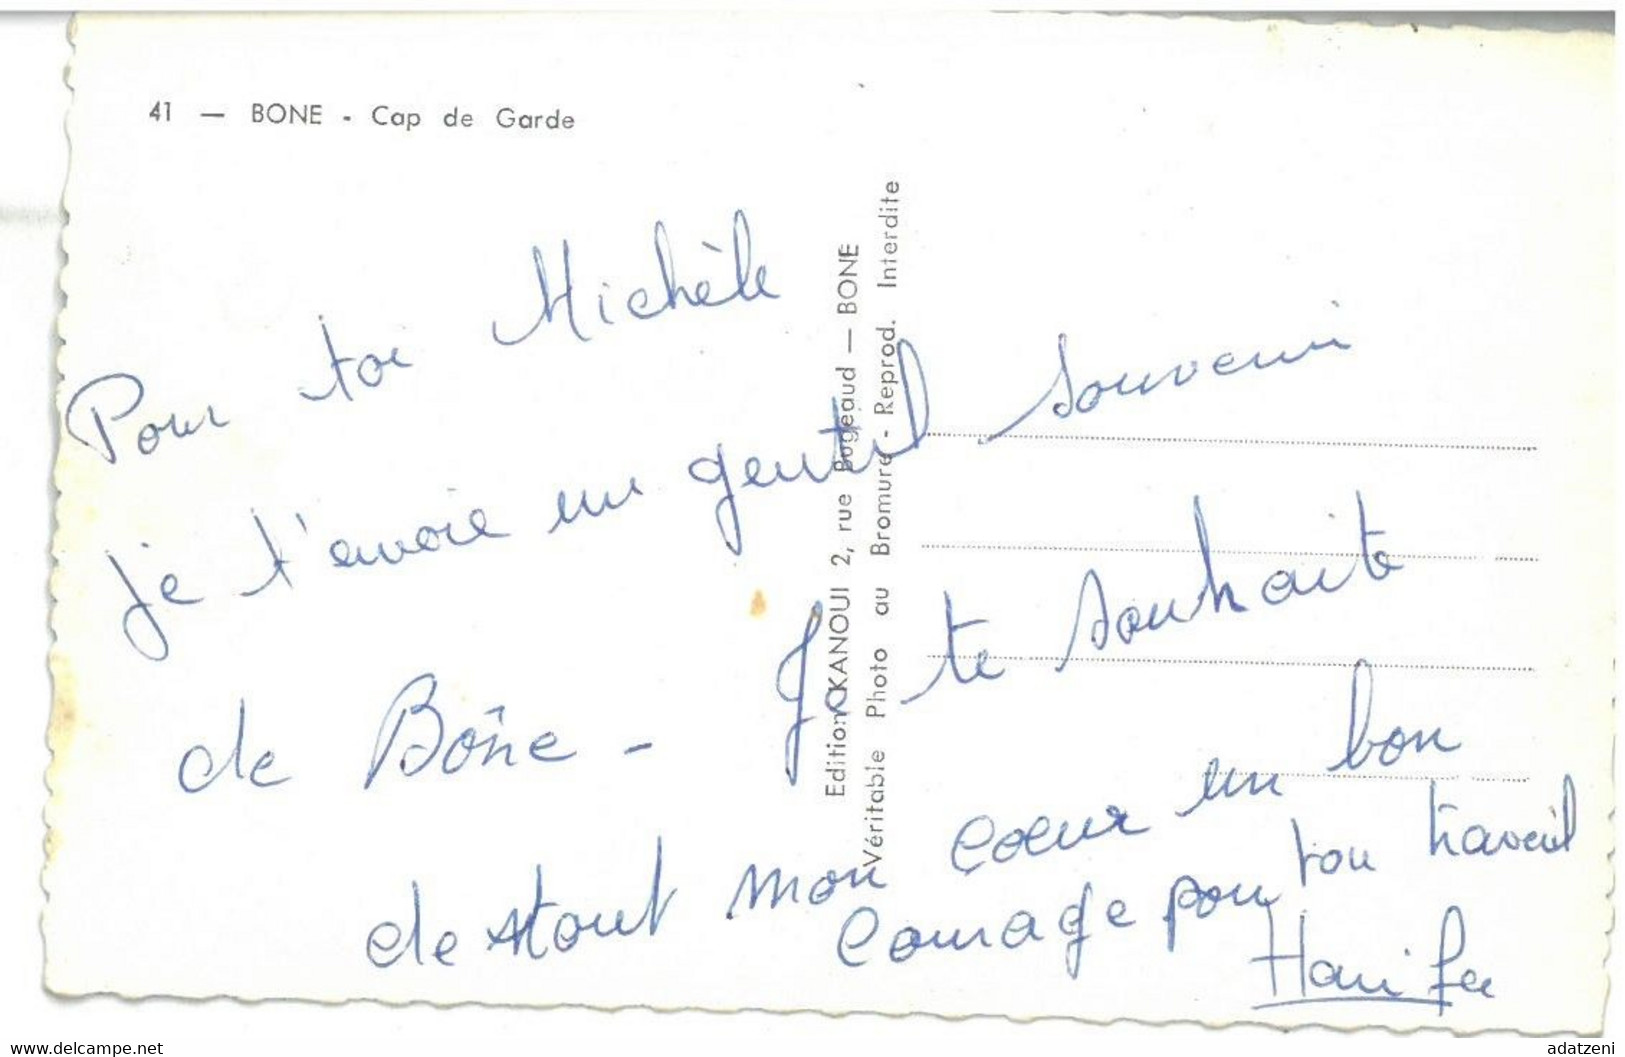 41 — BONE - Cap de Garde
Pour toi Michèle
je t'envoie un gentil souvenir
de Bône - Je te souhaite
de tout mon coeur un bon
courage pour ton travail
Hanifa
Edition OKANOUI 2, rue Bugeaud — BONE
Véritable Photo au Bromure - Reprod. Interdite
www.delcampe.net
adatzeni